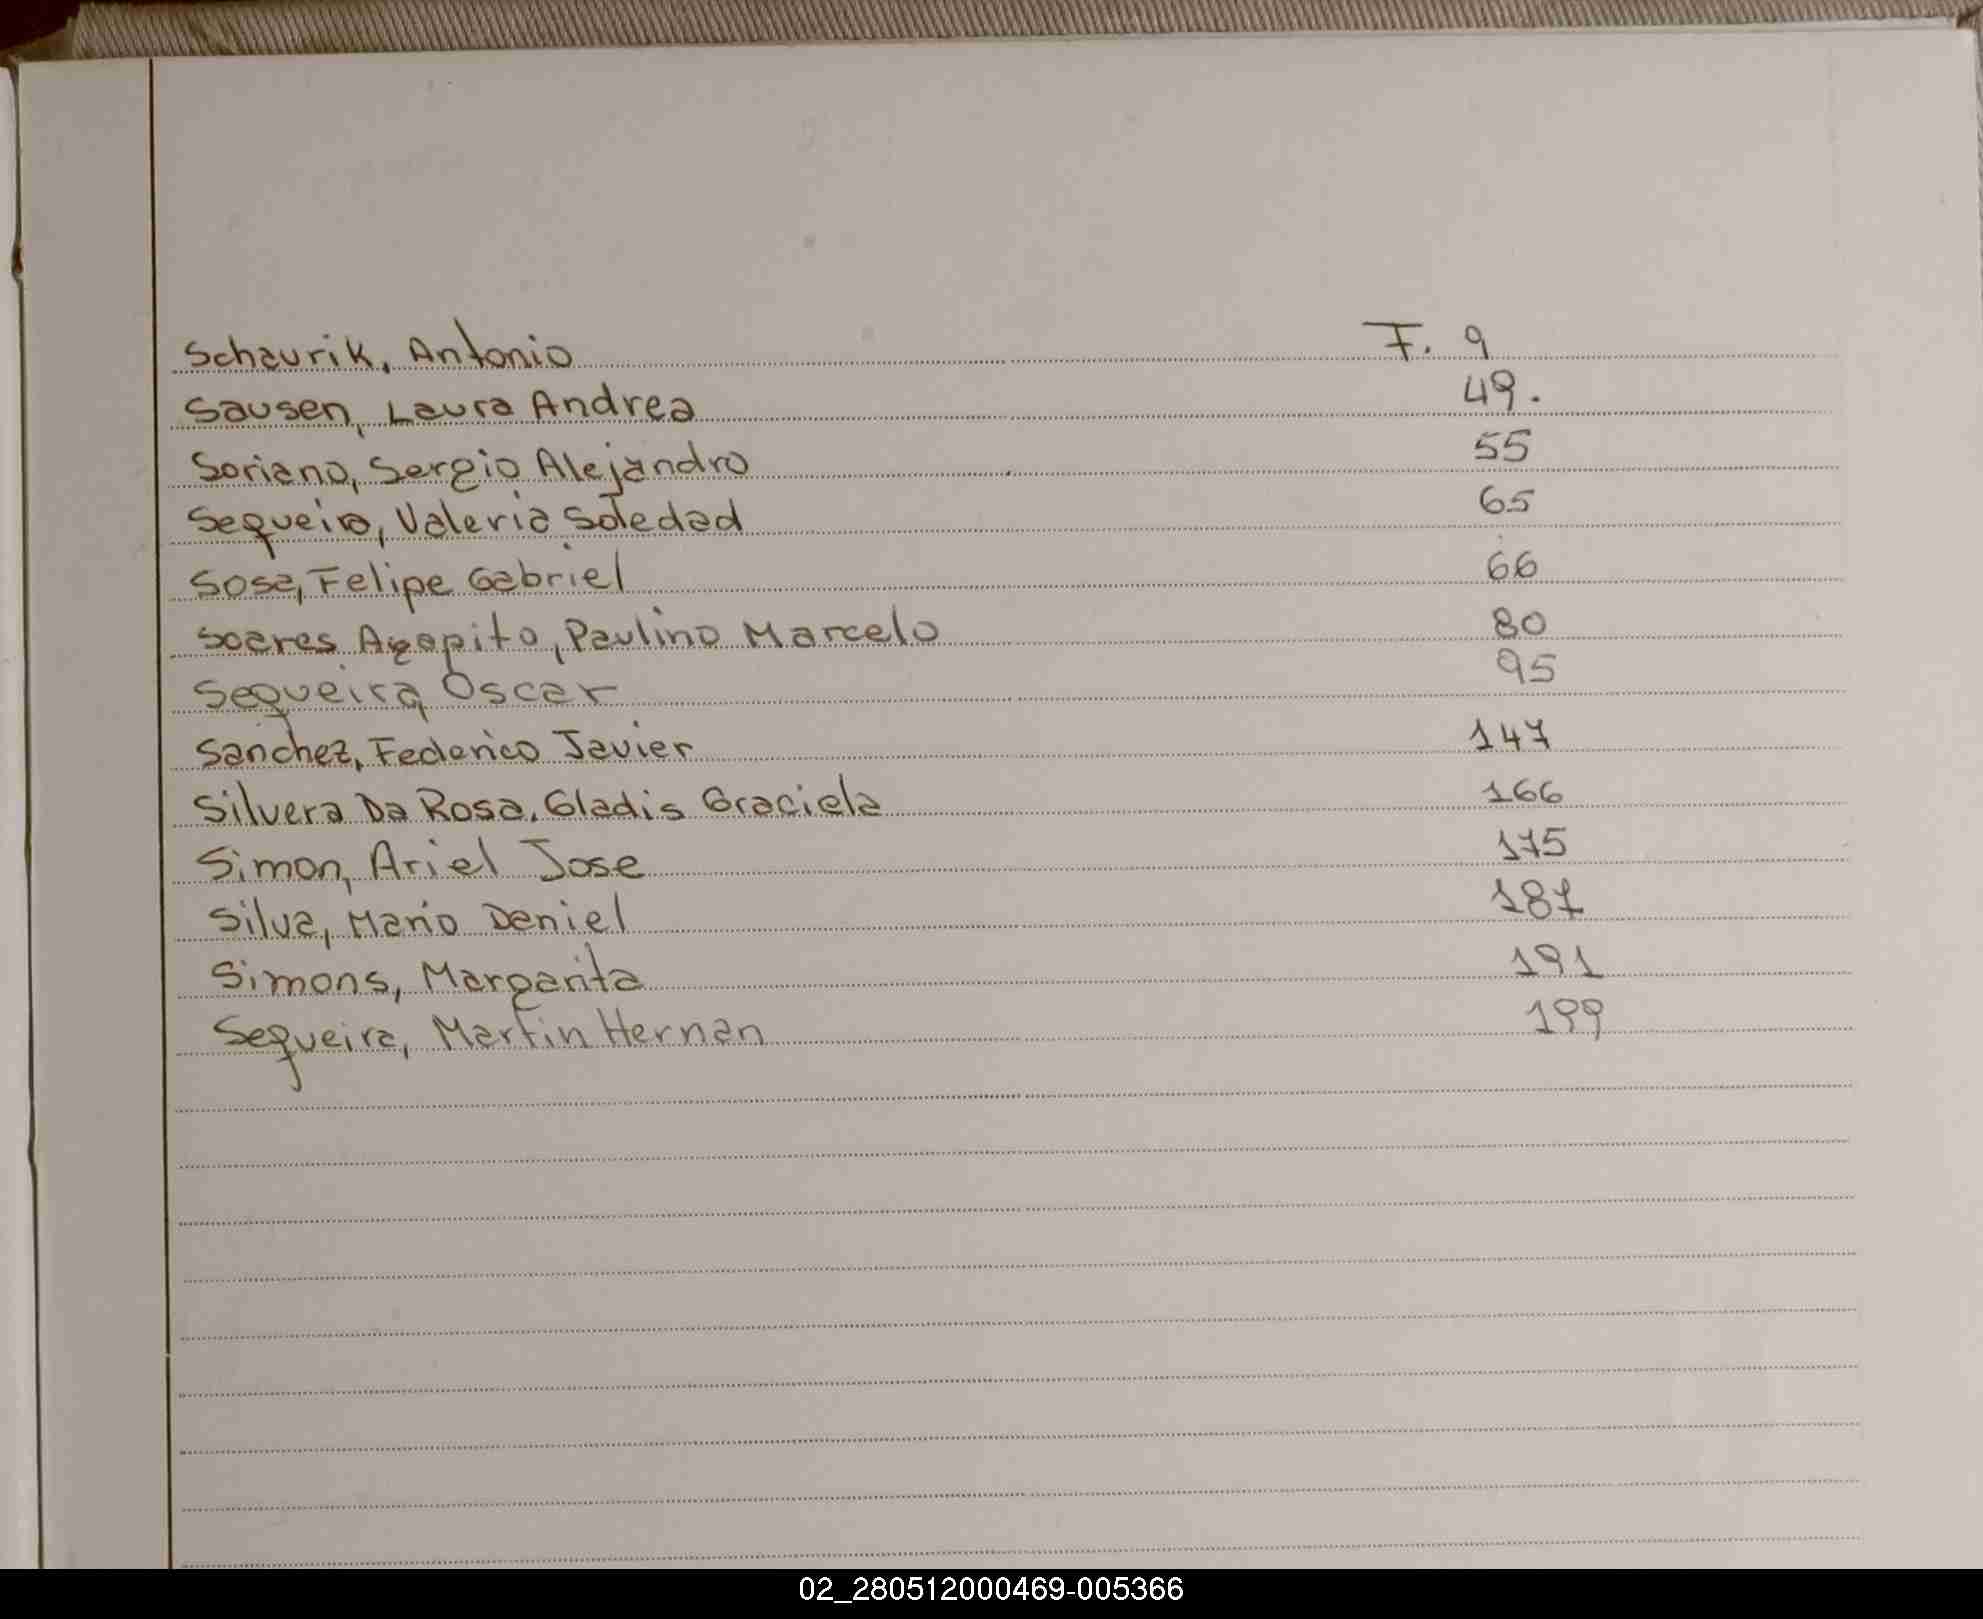 Schaurik, Antonio F. 9
Sausen, Laura Andrea 49.
Soriano, Sergio Alejandro 55
Sequeira, Valeria Soledad 65
Sosa, Felipe Gabriel 66
Soares Agapito, Paulino Marcelo 80
Sequeira, Oscar 95
Sanchez, Federico Javier 147
Silvera Da Rosa, Gladis Graciela 166
Simon, Ariel Jose 175
Silva, Mario Daniel 187
Simons, Margarita 191
Sequeira, Martin Hernan 199
02_280512000469-005366